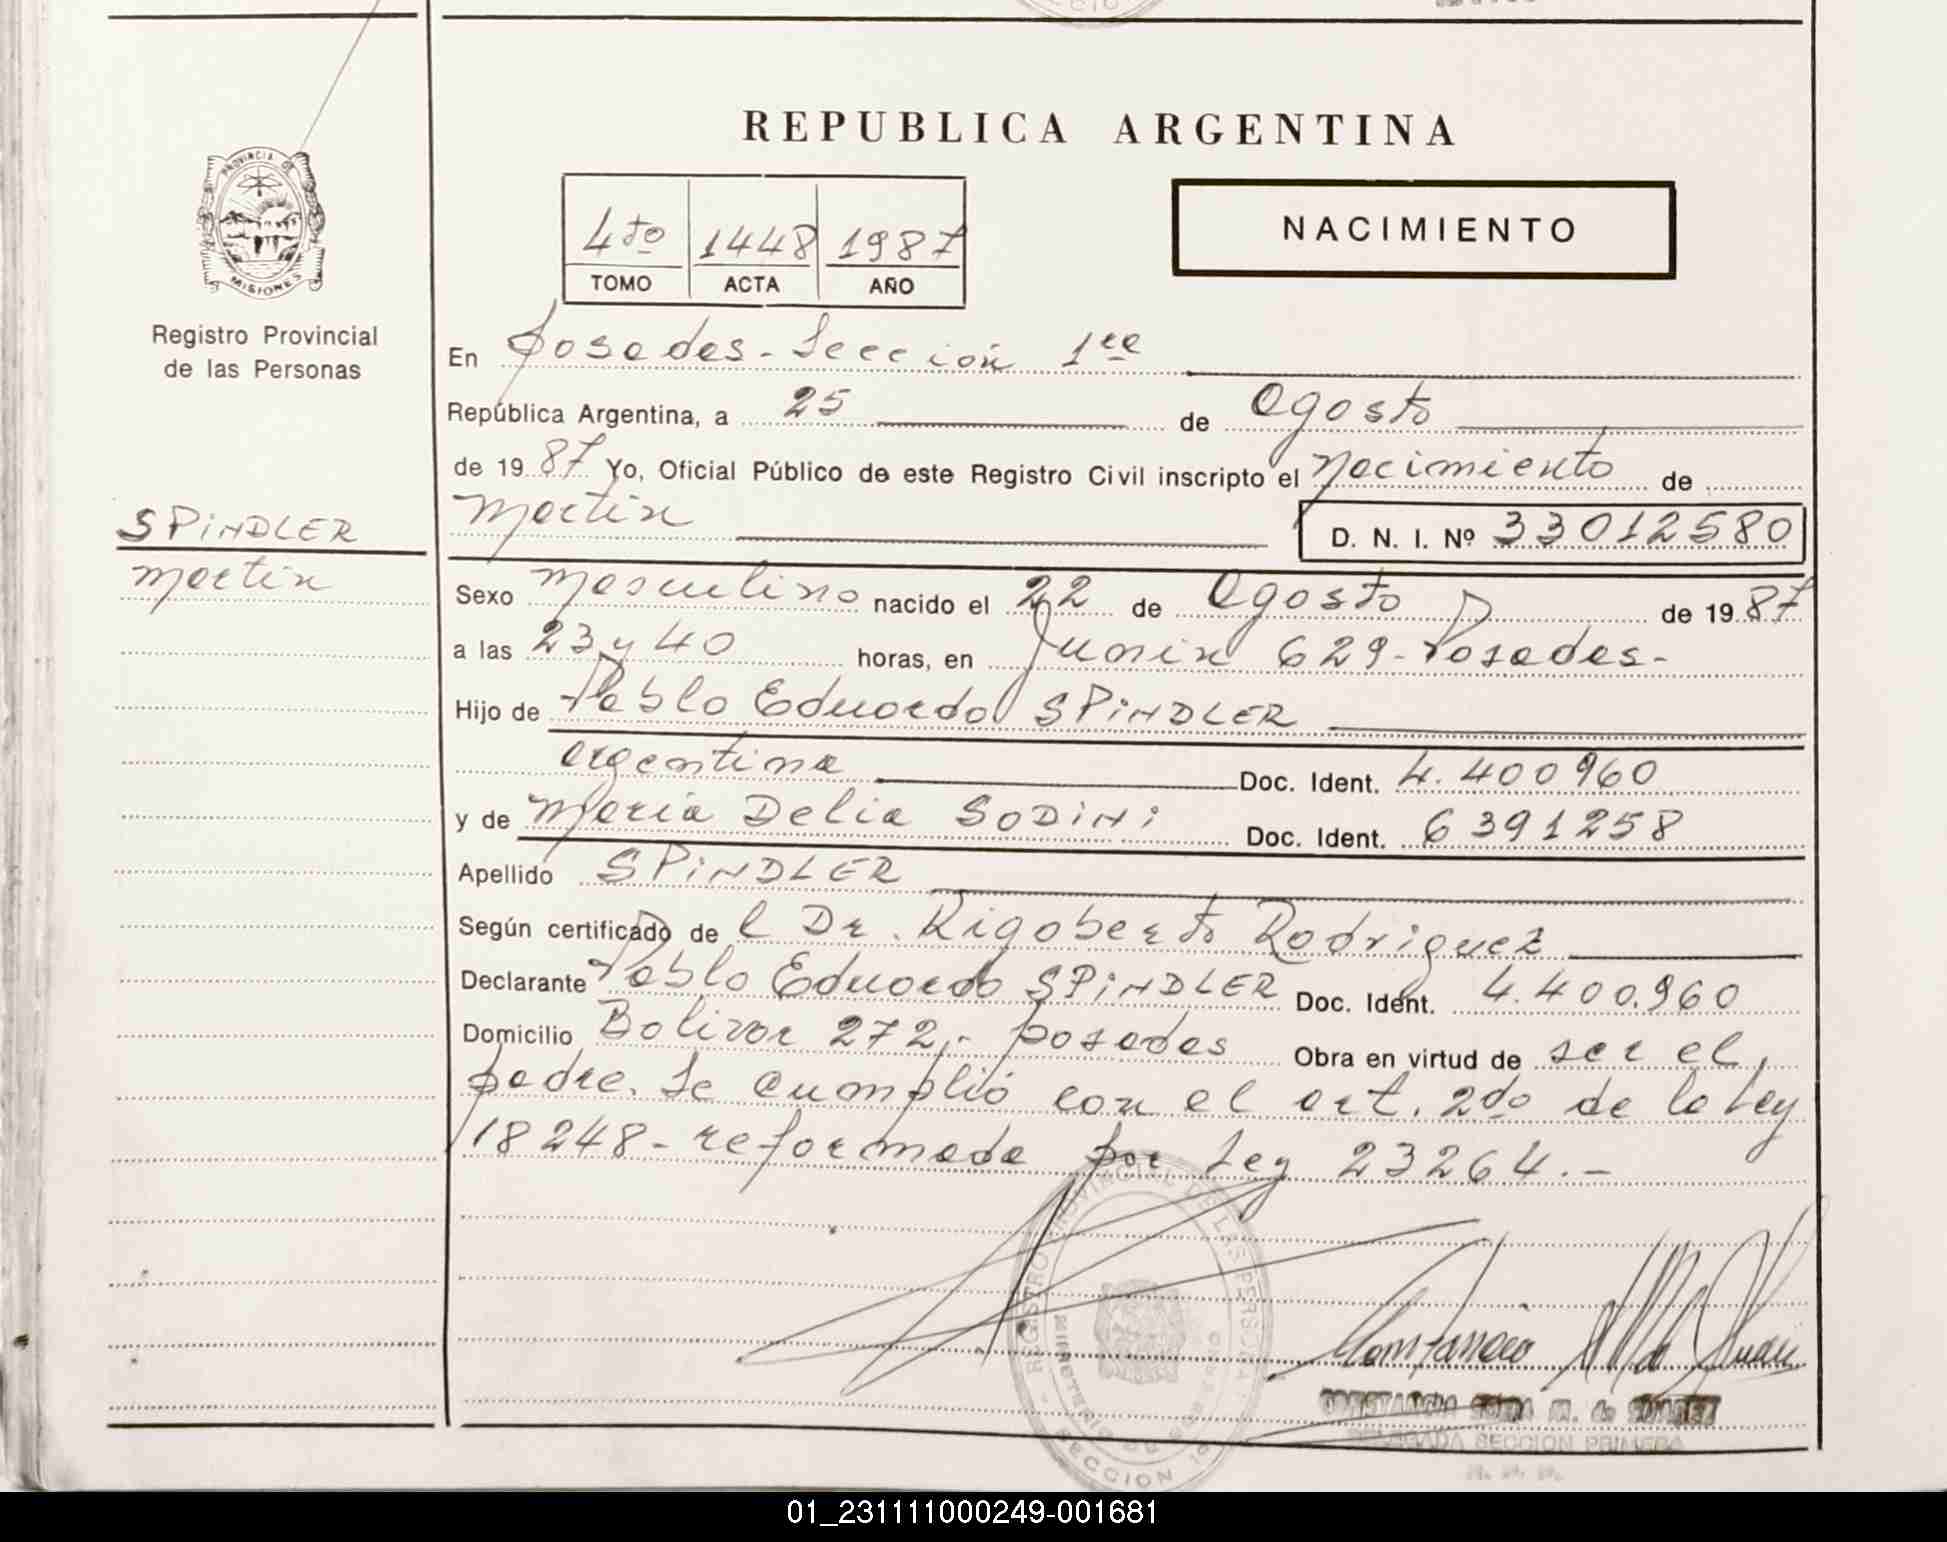 REPUBLICA ARGENTINA
PROVINCIA DE
MISIONES
Registro Provincial
de las Personas
4to 1448 1987
TOMO ACTA AÑO
NACIMIENTO
En Posadas - Sección 1ra
República Argentina, a 25 de Agosto
de 1987 Yo, Oficial Público de este Registro Civil inscripto el Nacimiento de
Martin D. N. I. Nº 33012580
SPINDLER
Martin
Sexo Masculino nacido el 22 de Agosto de 1987
a las 23 y 40 horas, en Junin 629 - Posadas -
Hijo de Pablo Eduardo SPINDLER
argentina Doc. Ident. 4.400960
y de Maria Delia SODINI Doc. Ident. 6391258
Apellido SPINDLER
Según certificado de l Dr. Rigoberto Rodriguez
Declarante Pablo Eduardo SPINDLER Doc. Ident. 4.400.960
Domicilio Bolivar 272,- Posadas Obra en virtud de ser el
padre. Se cumplió con el art. 2do de la Ley
18248 - reformada por Ley 23264.-
REGISTRO PROVINCIAL DE LAS PERSONAS
MINISTERIO DE GOBIERNO
SECCION 1a
CONSTANCIA M. de SUAREZ
DELEGADA SECCION PRIMERA
01_231111000249-001681